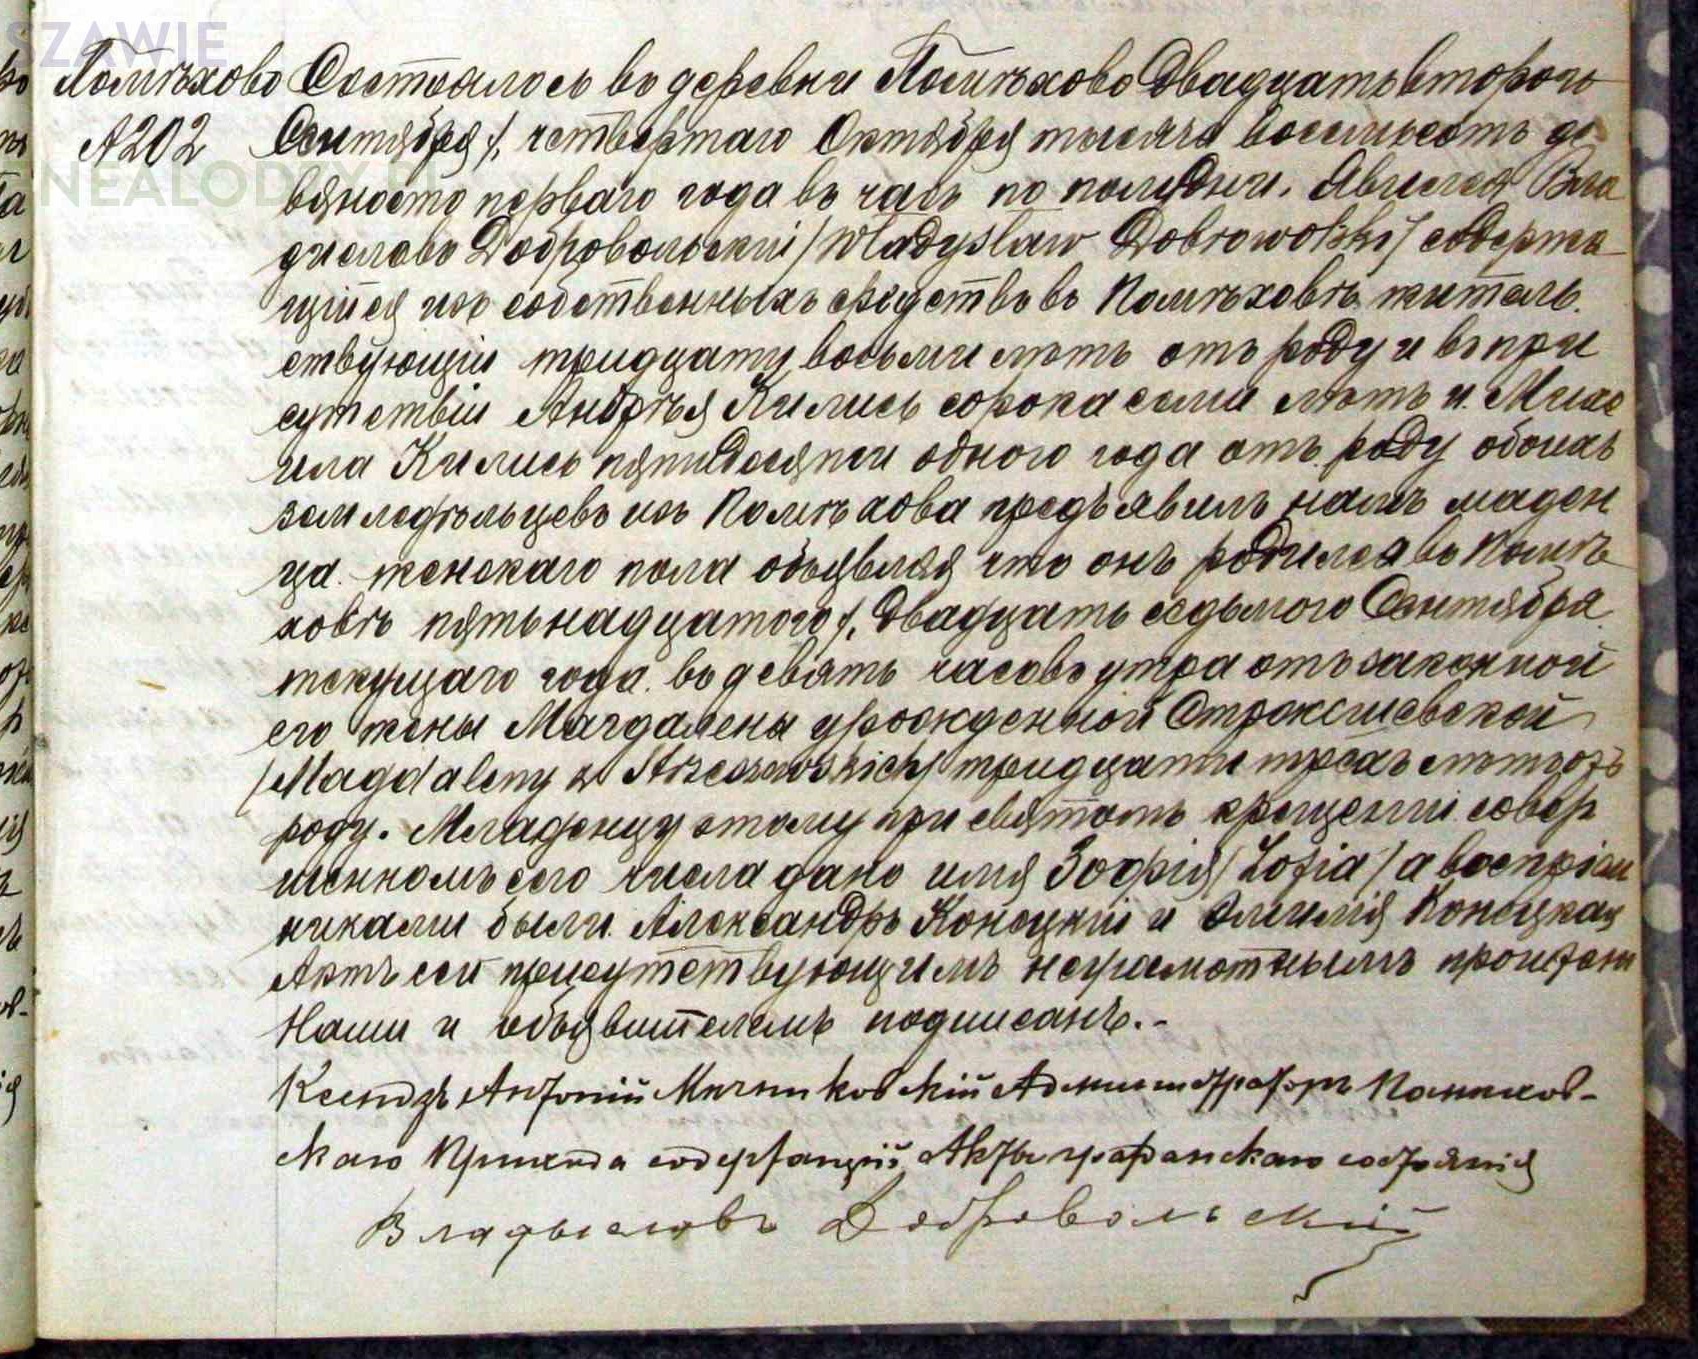 SZAWIE
NEALODZY.PL
Помѣхово Состоялось въ деревни Помѣхово Двадцать второго
№ 202 Сентября /. четвертаго Октября тысяча восемьсотъ де
вяносто перваго года въ часъ по полудни. Явился Вла
диславъ Добровольскій /Władysław Dobrowolski/ содержа
щійся изъ собственныхъ средствъ въ Помѣховѣ житель.
ствующій тридцати восьми лѣтъ отъ роду и въ при
сутствіи Андрѣя Кились сорока семи лѣтъ и Миха
ила Кились пятидесяти одного года отъ роду обоихъ
земледѣльцевъ изъ Помѣхова предъявилъ намъ маден
ца женскаго пола объявляя что онъ родился въ Помѣ
ховѣ пятьнадцатого /. Двадцать седьмого Сентября
текущаго года въ девять часовъ утра отъ законной
его жены Магдалены урожденной
/Magdaleny z тридцати трехъ лѣтъ отъ
роду. Младенцу этому при святомъ крещеніи совер
шенномъ сего числа дано имя Зофія /Zofia/ а воспріем
никами были Александръ Конецкій и Эмилія Конецкая
Актъ сей присутствующимъ неграмотнымъ прочтенъ
Нами и объявителемъ подписанъ.-
Ксендзъ Антоній Администраторъ Помѣхов-
скаго Прихода содержащій Акты гражданскаго состоянія
Владыславъ Добровольскій